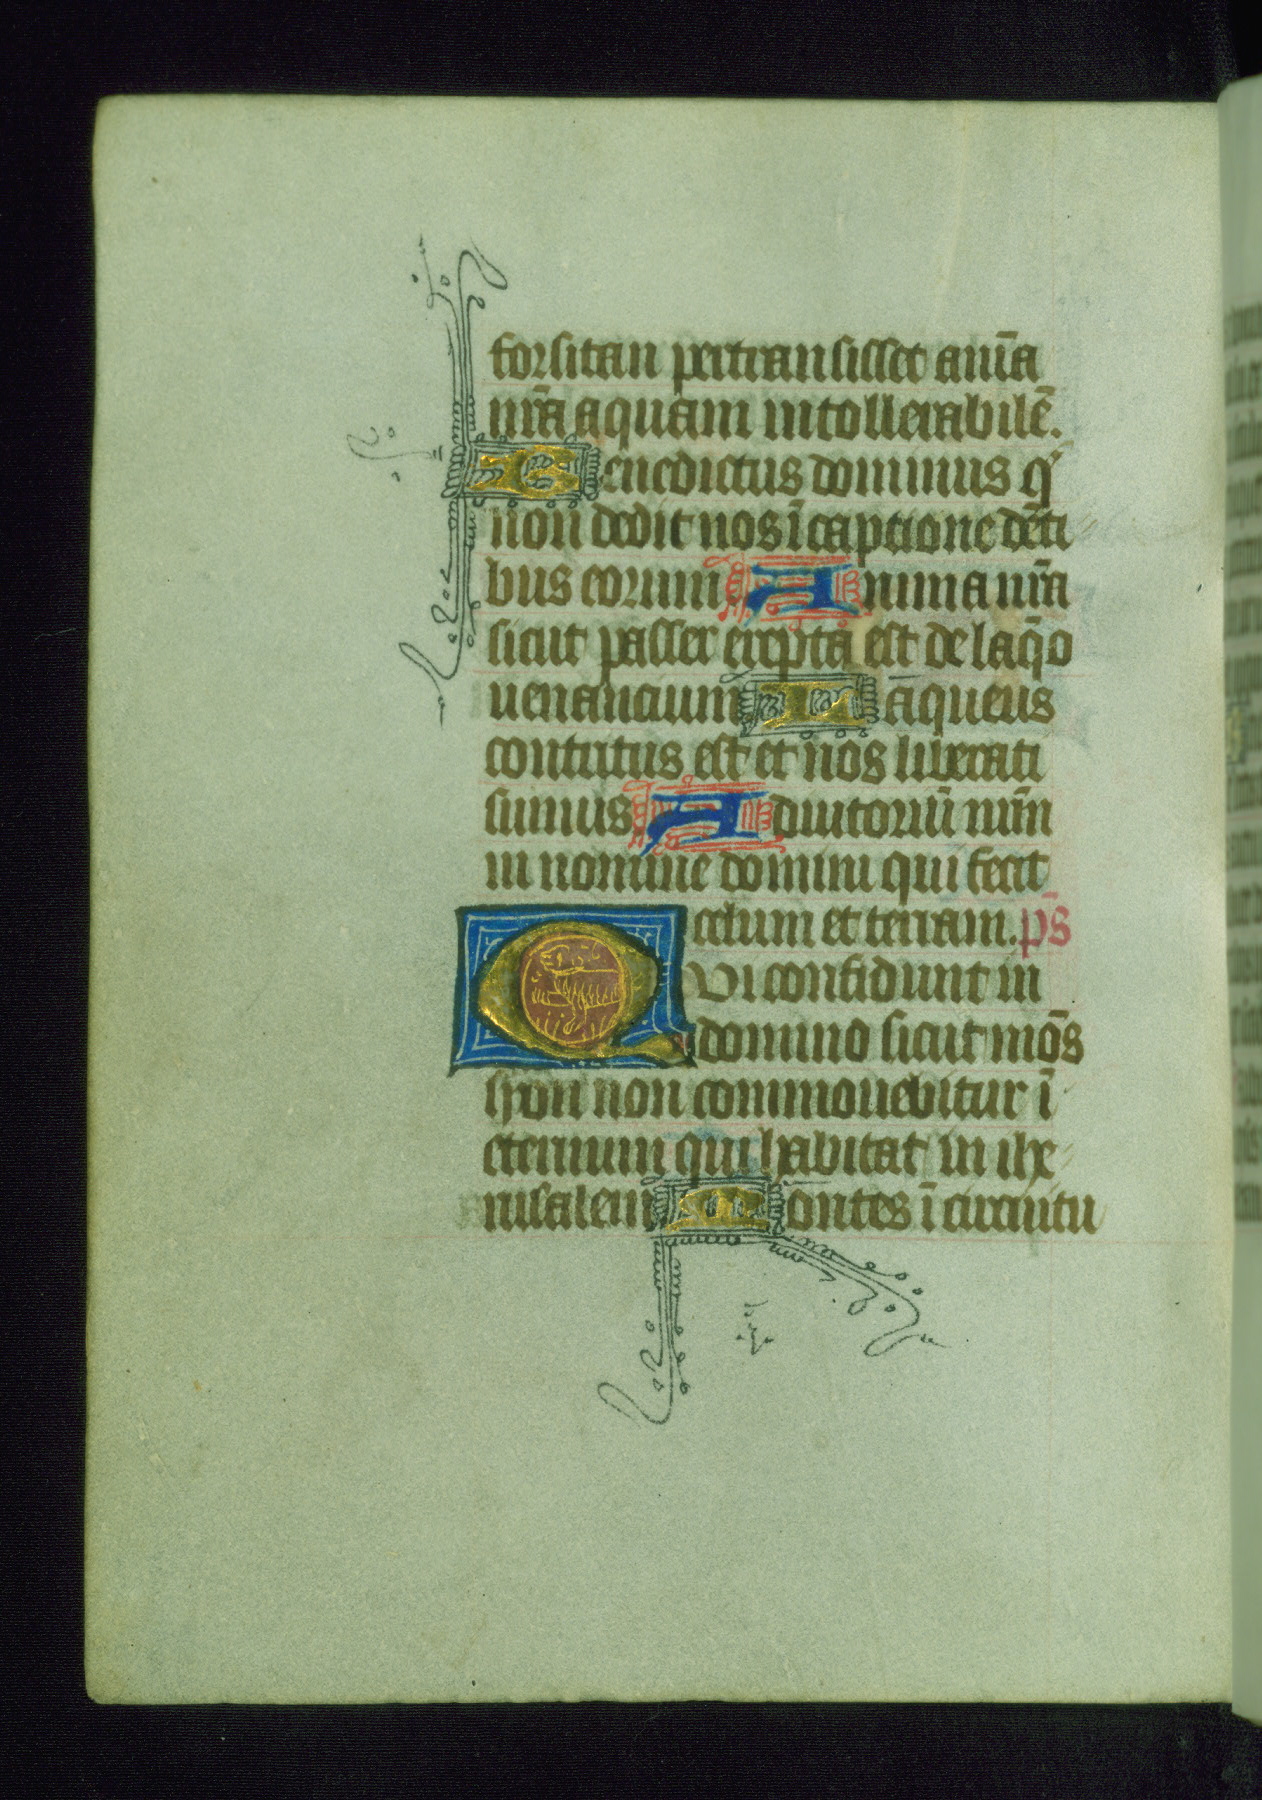 forsitan pertransisset anīa
nr̄a aquam intollerabilē.
Benedictus dominus q
non dedit nos ī captione dēti
bus eorum Anima nr̄a
sicut passer erepta est de laq̄o
uenancium Laqueus
contritus est et nos liberati
sumus Adiutoriū nr̄m
in nomine domini qui fecit
celum et terram. ps̄
QVi confidunt in
domino sicut mōs
syon non commouebitur ī
eternum qui habitat in ihe
rusalem Montes ī circuitu